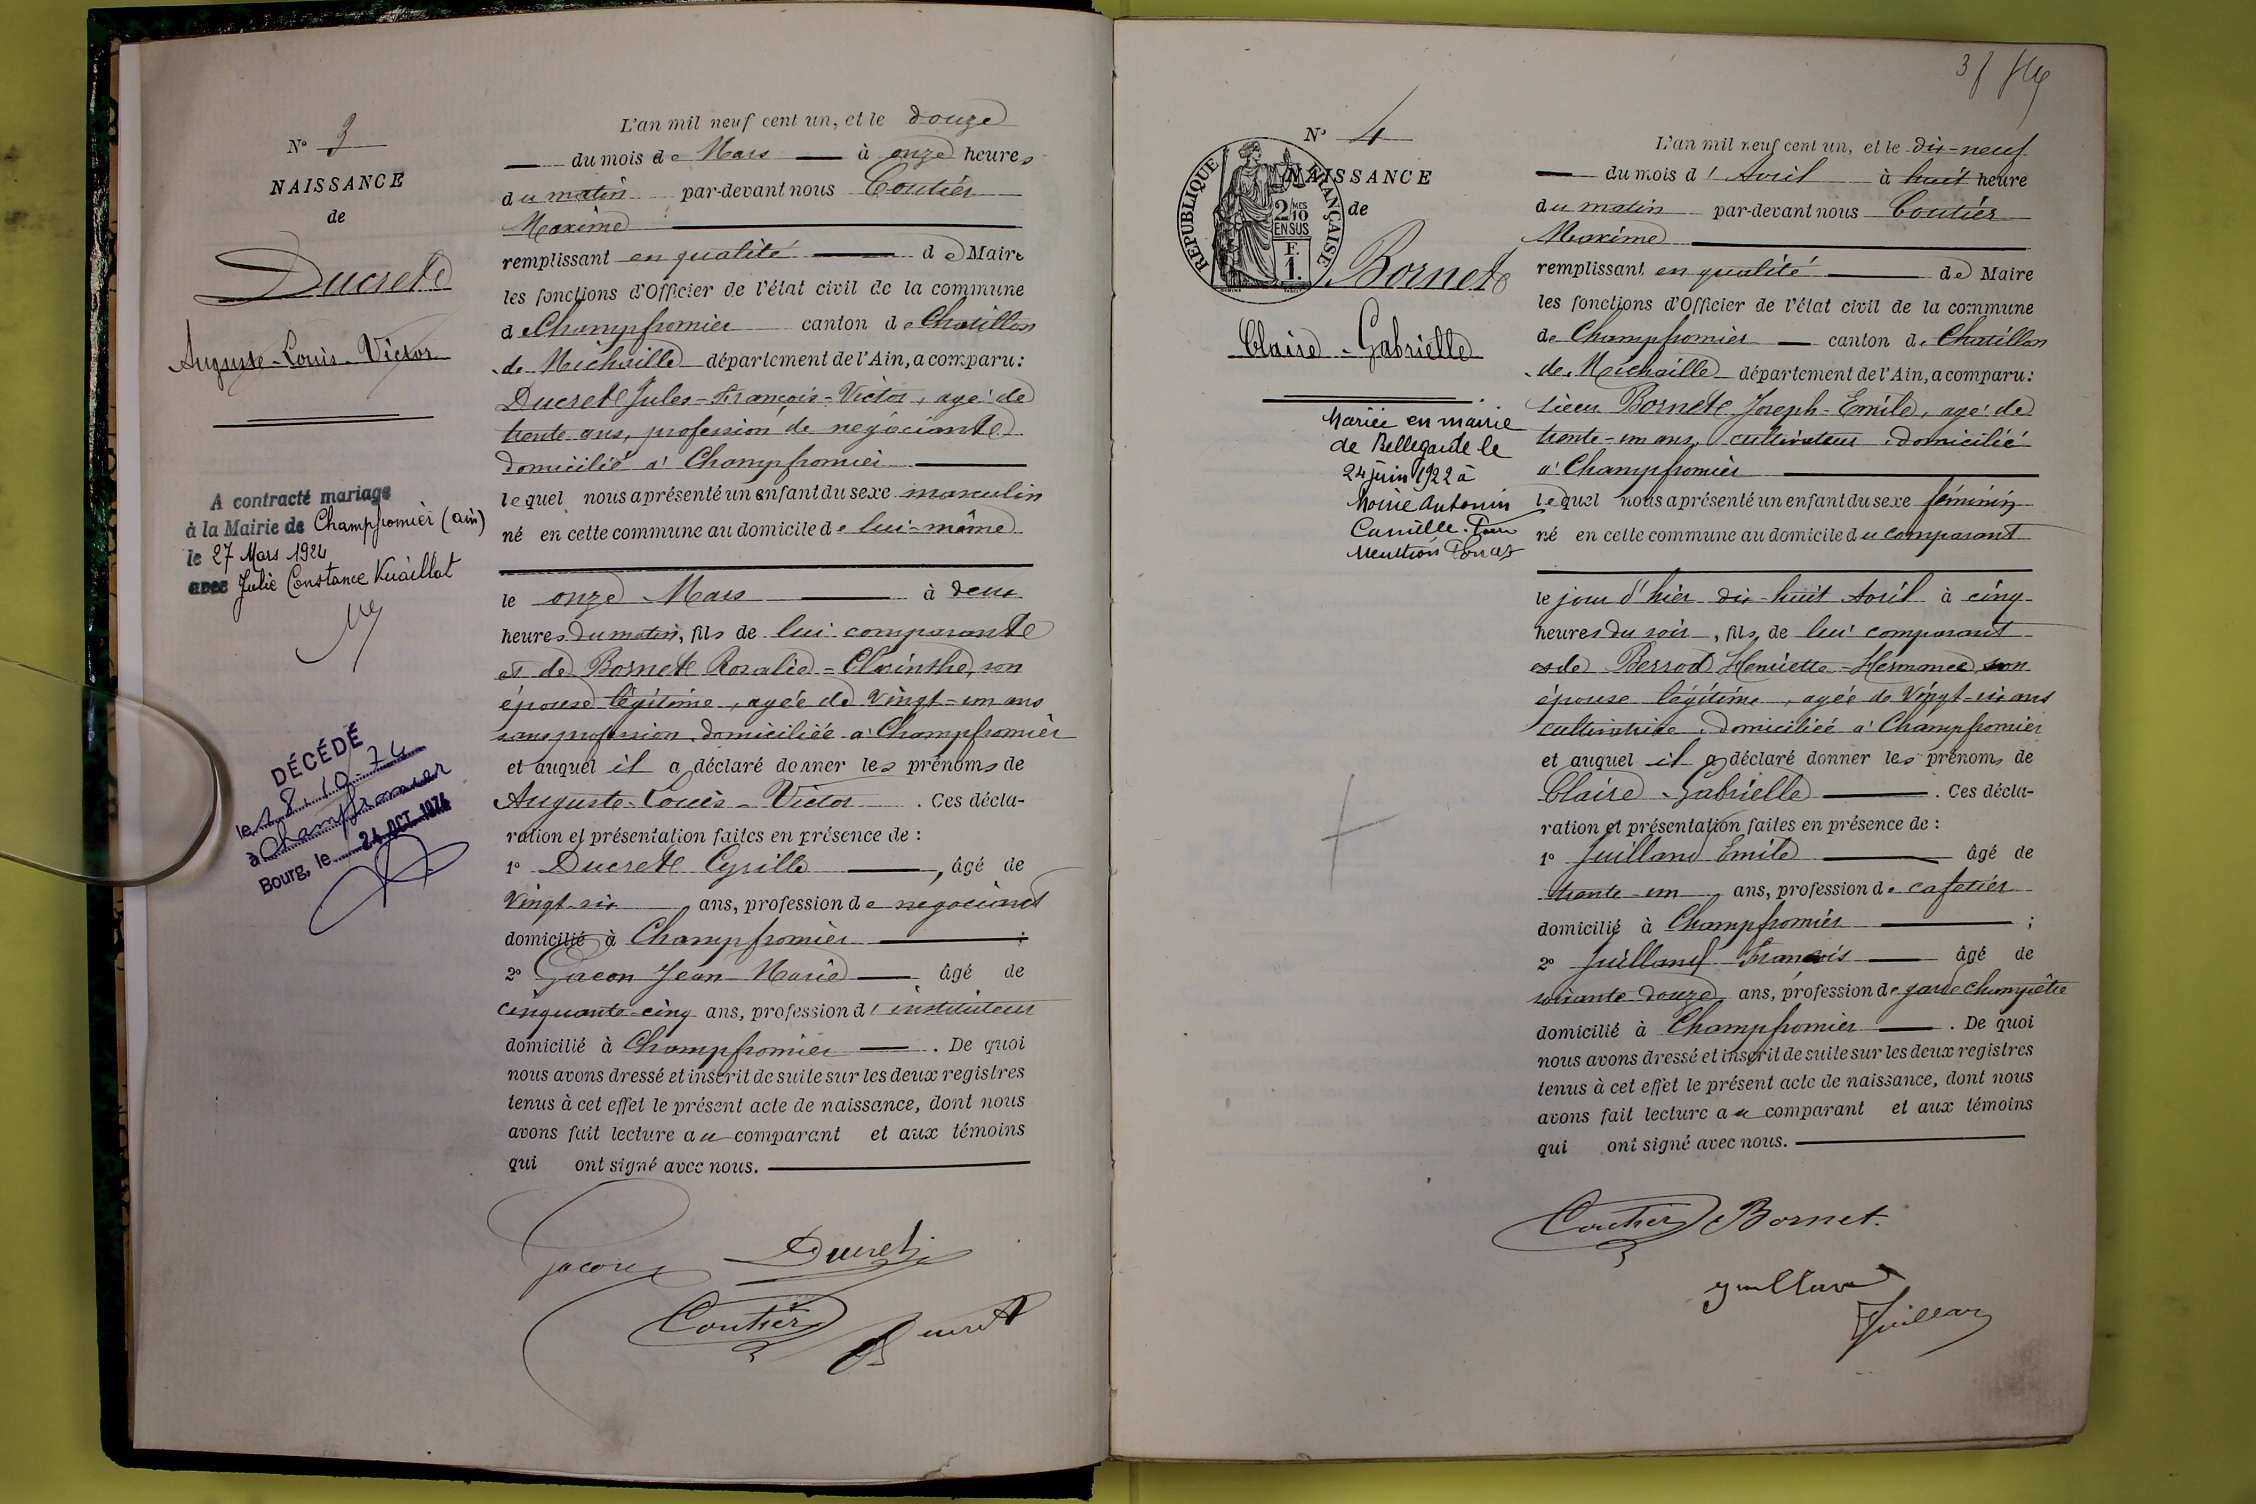 N° 3
NAISSANCE
de
Ducret
Auguste-Louis-Victor
A contracté mariage
à la Mairie de Champfromier (Ain)
le 27 Mars 1924
avec Julie Constance Vuaillat
DÉCÉDÉ
le 18.10.74
à Champfromier
Bourg, le 24 OCT. 1974
L'an mil neuf cent un, et le douze
du mois de Mars à onze heures
du matin par-devant nous Coutier
Maxime
remplissant en qualité de Maire
les fonctions d'Officier de l'état civil de la commune
de Champfromier canton de Chatillon
de Michaille département de l'Ain, a comparu:
Ducret Jules-François-Victor, agé de
trente ans, profession de négociant
domicilié à Champfromier
lequel nous a présenté un enfant du sexe masculin
né en cette commune au domicile de lui-même
le onze Mars à deux
heures du matin, fils de lui comparant
et de Bornet Rosalie-Clorinthe, son
épouse légitime, agée de Vingt-un ans
sans profession, domiciliée à Champfromier
et auquel il a déclaré donner les prénoms de
Auguste-Louis-Victor. Ces décla-
ration et présentation faites en présence de :
1° Ducret Cyrille, âgé de
Vingt-six ans, profession de negociant
domicilié à Champfromier ;
2° Gacon Jean-Marie âgé de
cinquante-cinq ans, profession d'instituteur
domicilié à Champfromier. De quoi
nous avons dressé et inscrit de suite sur les deux registres
tenus à cet effet le présent acte de naissance, dont nous
avons fait lecture au comparant et aux témoins
qui ont signé avec nous.
Gacon Ducret
Coutier Ducret
N° 4
NAISSANCE
de
RÉPUBLIQUE FRANÇAISE
2/10 MES
EN SUS
F.
1.
Bornet
Claire-Gabrielle
Mariée en mairie
de Bellegarde le
24 juin 1922 à
Antonin
Camille.
L'an mil neuf cent un, et le dix-neuf
du mois d'Avril à huit heure
du matin par-devant nous Coutier
Maxime
remplissant en qualité de Maire
les fonctions d'Officier de l'état civil de la commune
de Champfromier canton de Chatillon
de Michaille département de l'Ain, a comparu:
sieur Bornet Joseph-Emile, agé de
trente-un ans, cultivateur, domicilié
à Champfromier
lequel nous a présenté un enfant du sexe féminin
né en cette commune au domicile du comparant
le jour d'hier dix-huit Avril à cinq
heures du soir, fils de lui comparant
et de Berrod Henriette-Hermance, son
épouse légitime, agée de Vingt-six ans
cultivatrice, domiciliée à Champfromier
et auquel il a déclaré donner les prénoms de
Claire-Gabrielle. Ces décla-
ration et présentation faites en présence de :
1° Juilland Emile âgé de
trente-un ans, profession de cafetier
domicilié à Champfromier ;
2° Juilland François âgé de
soixante-douze ans, profession de garde champêtre
domicilié à Champfromier. De quoi
nous avons dressé et inscrit de suite sur les deux registres
tenus à cet effet le présent acte de naissance, dont nous
avons fait lecture au comparant et aux témoins
qui ont signé avec nous.
Coutier Bornet
Juilland
Juilland